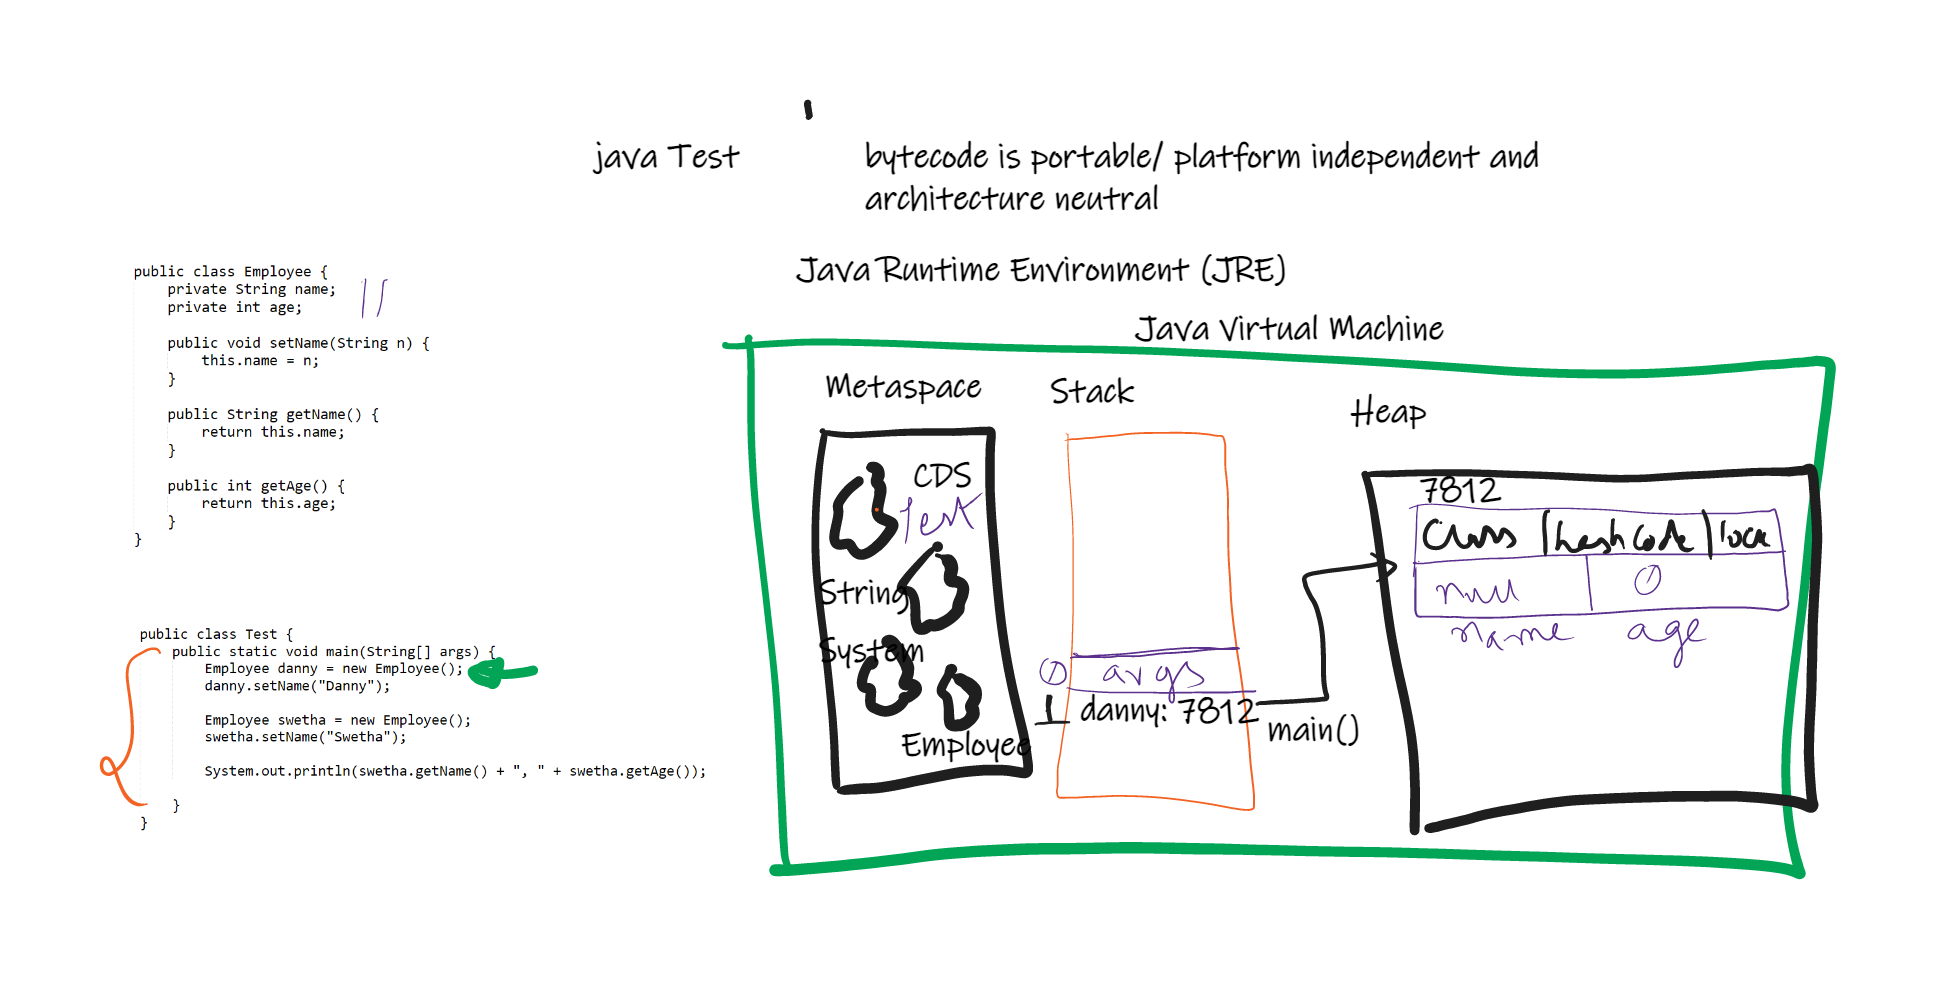 java Test
bytecode is portable/ platform independent and
architecture neutral
Java Runtime Environment (JRE)
Java Virtual Machine
public class Employee {
private String name;
private int age;
public void setName(String n) {
this.name = n;
}
public String getName() {
return this.name;
}
public int getAge() {
return this.age;
}
}
public class Test {
public static void main(String[] args) {
Employee danny = new Employee();
danny.setName("Danny");
Employee swetha = new Employee();
swetha.setName("Swetha");
System.out.println(swetha.getName() + ", " + swetha.getAge());
}
}
Metaspace
CDS
Test
String
System
Employee
Stack
0 args
1 danny: 7812
main()
Heap
7812
Class | hashCode | lock
null 0
name age